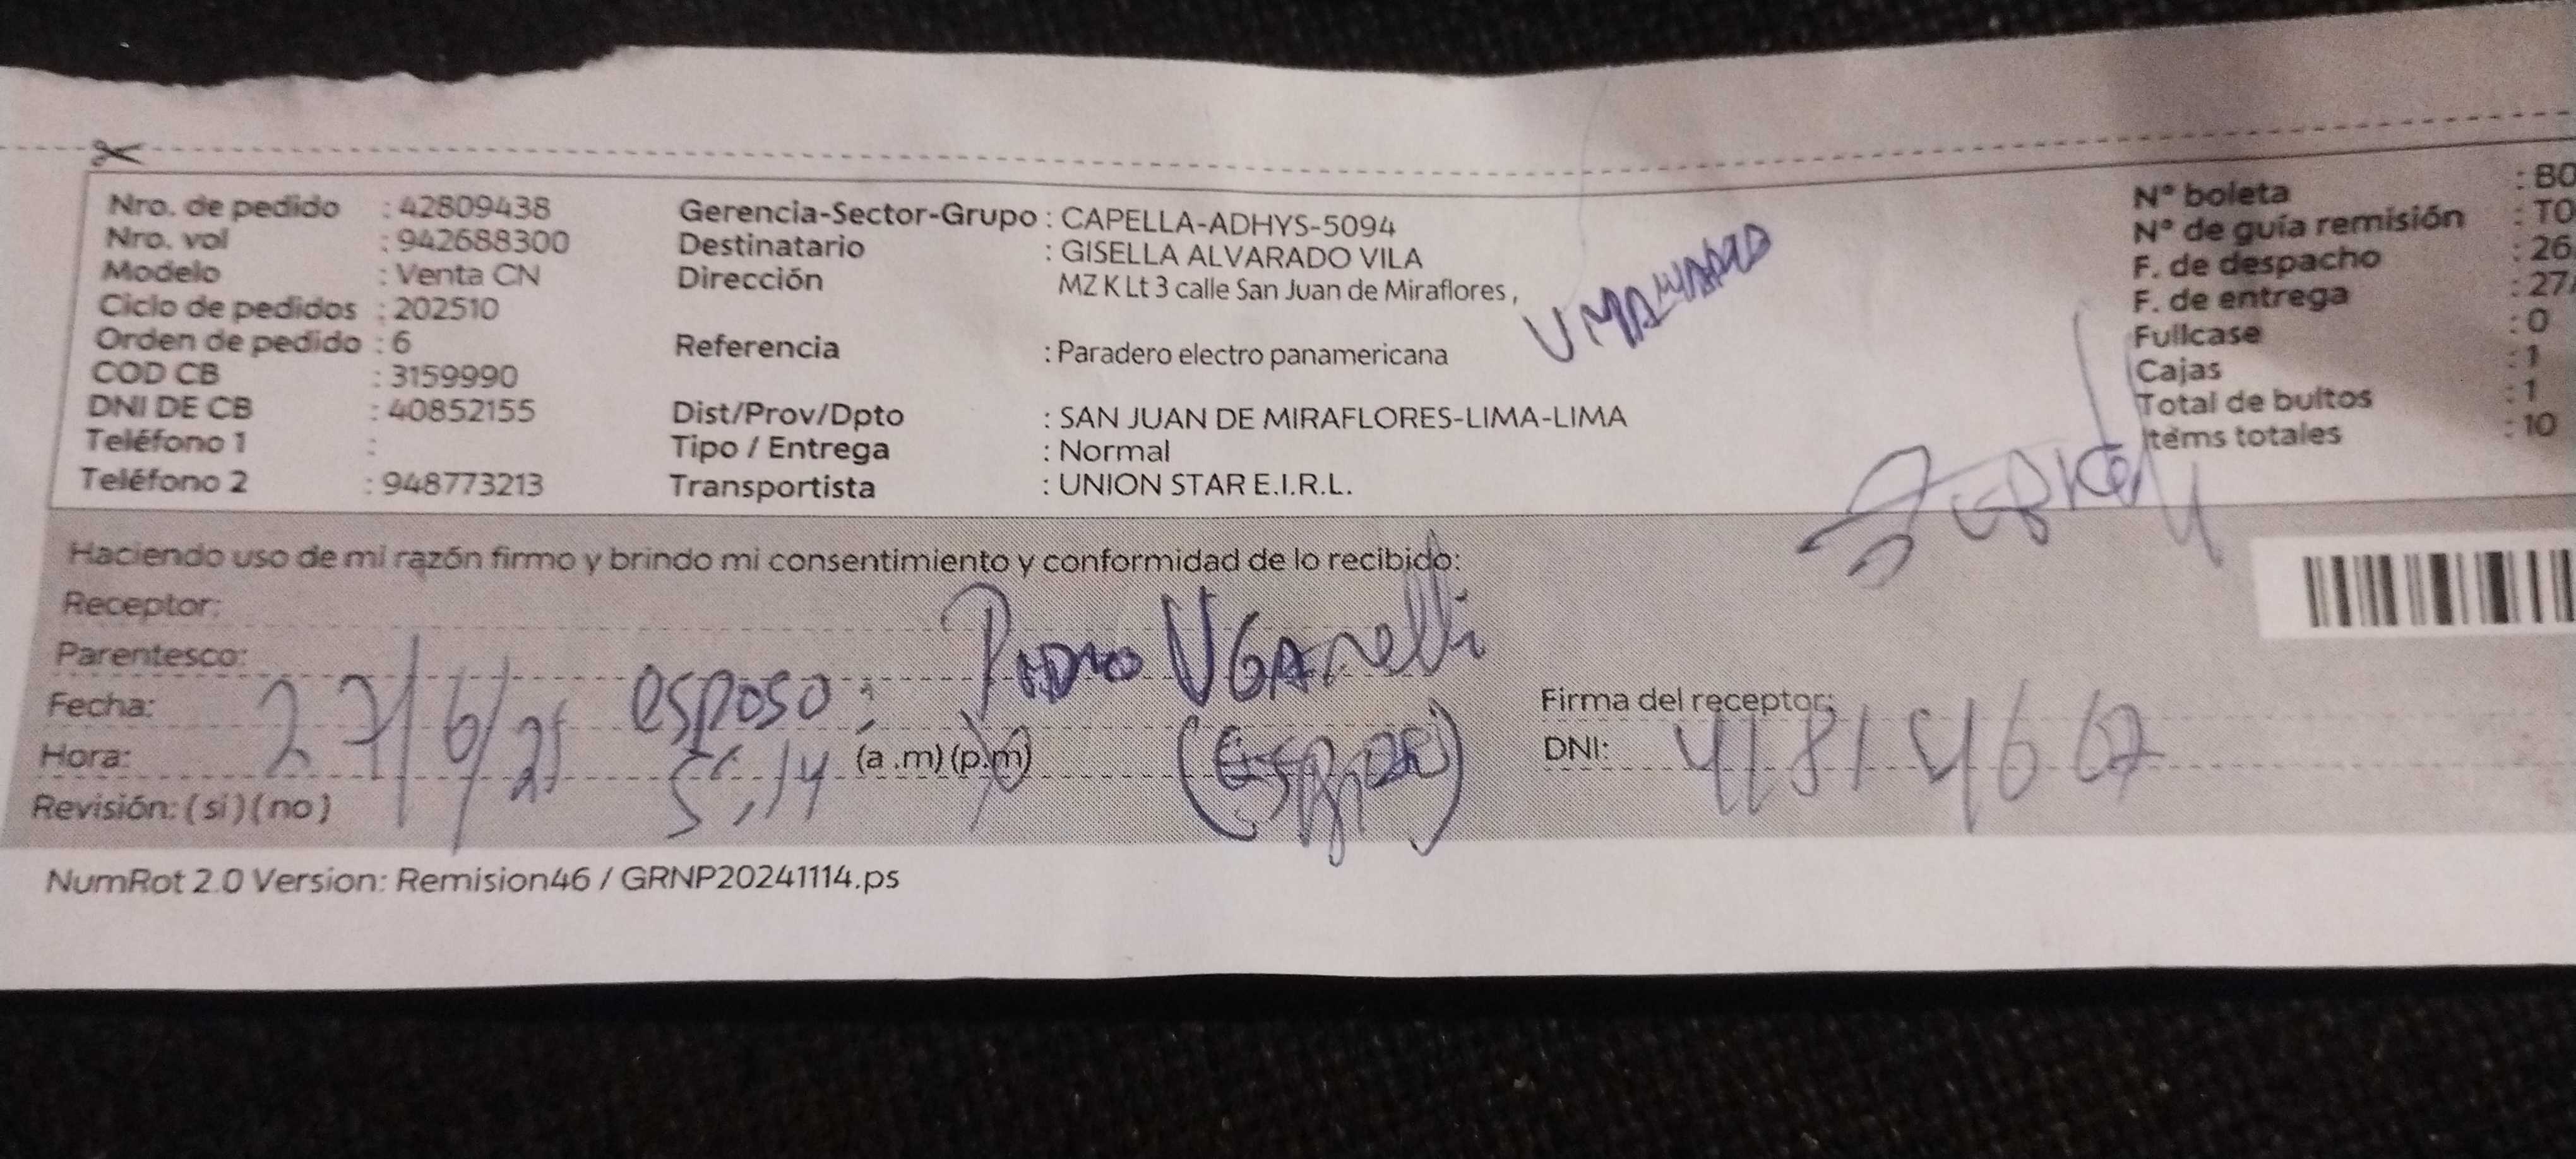 Nro. de pedido : 42809438
Nro. vol : 942688300
Modelo : Venta CN
Ciclo de pedidos : 202510
Orden de pedido : 6
COD CB : 3159990
DNI DE CB : 40852155
Teléfono 1 :
Teléfono 2 : 948773213
Gerencia-Sector-Grupo : CAPELLA-ADHYS-5094
Destinatario : GISELLA ALVARADO VILA
Dirección MZ K Lt 3 calle San Juan de Miraflores ,
Referencia : Paradero electro panamericana
Dist/Prov/Dpto : SAN JUAN DE MIRAFLORES-LIMA-LIMA
Tipo / Entrega : Normal
Transportista : UNION STAR E.I.R.L.
N° boleta : B0
N° de guía remisión : T0
F. de despacho : 26
F. de entrega : 27/
Fullcase : 0
Cajas : 1
Total de bultos : 1
Items totales : 10
Haciendo uso de mi razón firmo y brindo mi consentimiento y conformidad de lo recibido:
Receptor:
Parentesco: esposo :
Fecha: 27/6/25
Hora: 5:14 (a .m) (p.m)
Revisión: ( si ) ( no )
Firma del receptor:
DNI: 41814667
NumRot 2.0 Version: Remision46 / GRNP20241114.ps